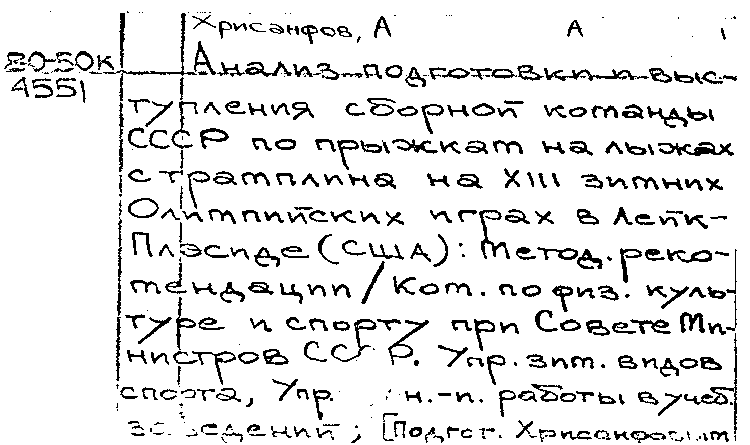 Хрисанфов, А А
80-50к
Анализ подготовки и выс-
4551
тупления сборной команды
СССР по прыжкам на лыжах
с трамплина на XIII зимних
Олимпийских играх в Лейк-
Плэсиде (США): Метод. реко-
мендации / Ком. по физ. куль-
туре и спорту при Совете Ми-
нистров СССР. Упр. зим. видов
спорта, Упр. н.-и. работы в учеб.
заведений; [Подгот. Хрисанфовым